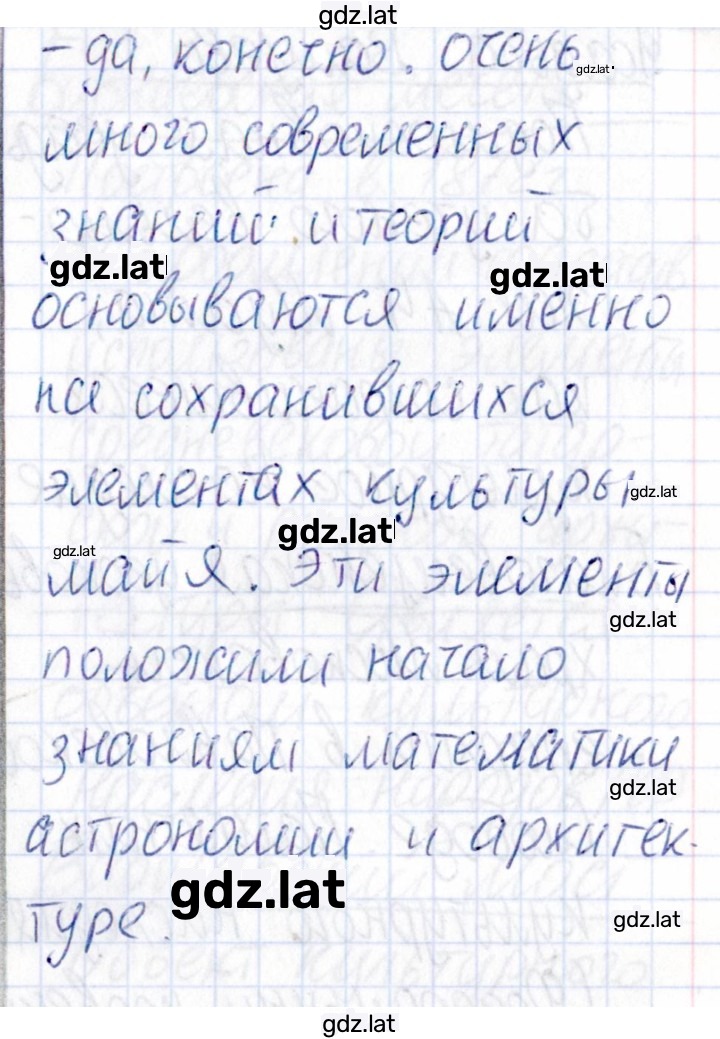 gdz.lat
- да, конечно. очень
gdz.lat
много современных
знаний и теорий
gdz.lat
gdz.lat
основываются именно
на сохранившихся
элементах культуры
gdz.lat
gdz.lat
gdz.lat
майя. Эти элементы
gdz.lat
положили начало
знаниям математики
gdz.lat
астрономии и архитек-
gdz.lat
туре.
gdz.lat
gdz.lat